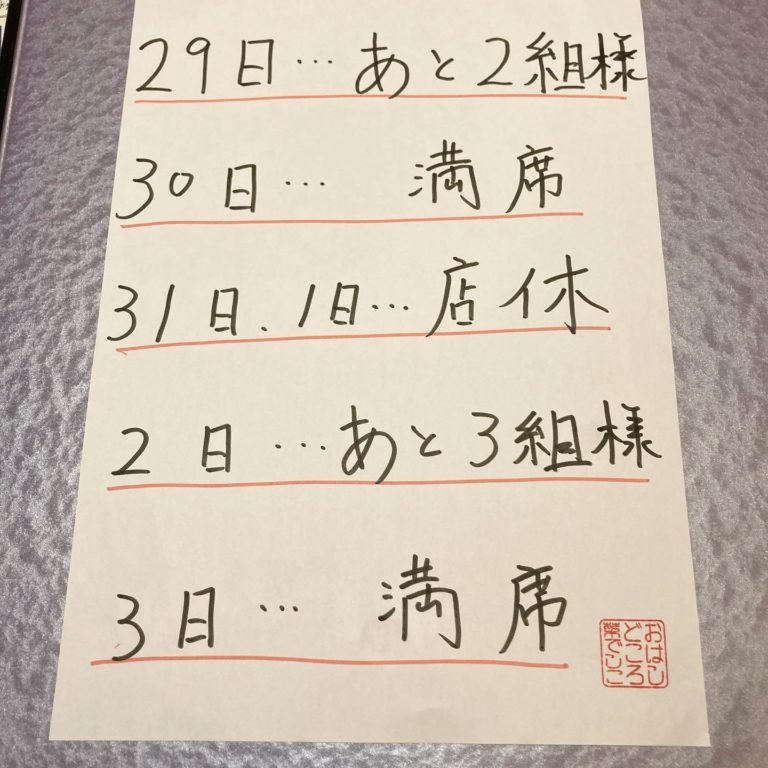 29日…あと2組様
30日… 満席
31日、1日…店休
2日…あと3組様
3日… 満席
おはし
どころ